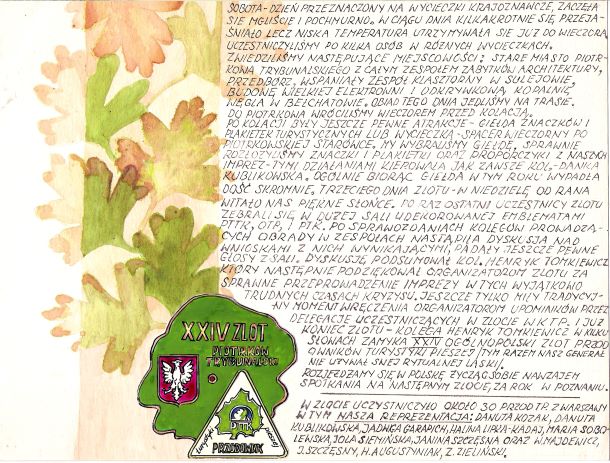 SOBOTA-DZIEŃ PRZEZNACZONY NA WYCIECZKI KRAJOZNAWCZE, ZACZĘŁA
SIĘ MGLIŚCIE I POCHMURNO. W CIĄGU DNIA KILKAKROTNIE SIĘ PRZEJA-
ŚNIAŁO LECZ NISKA TEMPERATURA UTRZYMYWAŁA SIĘ JUŻ DO WIECZORA.
UCZESTNICZYLIŚMY PO KILKA OSÓB W RÓŻNYCH WYCIECZKACH.
ZWIEDZILIŚMY NASTĘPUJĄCE MIEJSCOWOŚCI: STARE MIASTO PIOTR-
KOWA TRYBUNALSKIEGO Z CAŁYM ZESPOŁEM ZABYTKÓW ARCHITEKTURY,
PRZEDBÓRZ, WSPANIAŁY ZESPÓŁ KLASZTORNY W SULEJOWIE,
BUDOWĘ WIELKIEJ ELEKTROWNI I ODKRYWKOWĄ KOPALNIĘ
WĘGLA W BEŁCHATOWIE. OBIAD TEGO DNIA JEDLIŚMY NA TRASIE.
DO PIOTRKOWA WRÓCILIŚMY WIECZOREM PRZED KOLACJĄ.
PO KOLACJI BYŁY JESZCZE PEWNE ATRAKCJE - GIEŁDA ZNACZKÓW I
PLAKIETEK TURYSTYCZNYCH LUB WYCIECZKA-SPACER WIECZORNY PO
PIOTRKOWSKIEJ STARÓWCE. MY WYBRALIŚMY GIEŁDĘ, SPRAWNIE
ROZŁOŻYLIŚMY ZNACZKI I PLAKIETKI ORAZ PROPORCZYKI Z NASZYCH
IMPREZ - TYMI DZIAŁANIAMI KIEROWAŁA JAK ZAWSZE KOL. DANKA
KUBLIKOWSKA. OGÓLNIE BIORĄC GIEŁDA W TYM ROKU WYPADŁA
DOŚĆ SKROMNIE. TRZECIEGO DNIA ZLOTU - W NIEDZIELĘ OD RANA
WITAŁO NAS PIĘKNE SŁOŃCE. PO RAZ OSTATNI UCZESTNICY ZLOTU
ZEBRALI SIĘ W DUŻEJ SALI UDEKOROWANEJ EMBLEMATAMI
PTTK, OTP, I PTK. PO SPRAWOZDANIACH KOLEGÓW PROWADZĄ-
CYCH OBRADY W ZESPOŁACH NASTĄPIŁA DYSKUSJA NAD
WNIOSKAMI Z NICH WYNIKAJĄCYMI, PADAŁY JESZCZE PEWNE
GŁOSY Z SALI. DYSKUSJĘ PODSUMOWAŁ KOL. HENRYK TOMKIEWICZ
KTÓRY NASTĘPNIE PODZIĘKOWAŁ ORGANIZATOROM ZLOTU ZA
SPRAWNIE PRZEPROWADZENIE IMPREZY W TYCH WYJĄTKOWO
TRUDNYCH CZASACH KRYZYSU. JESZCZE TYLKO MIŁY TRADYCYJ-
NY MOMENT WRĘCZENIA ORGANIZATOROM UPOMINKÓW PRZEZ
DELEGACJE UCZESTNICZĄCYCH W ZLOCIE W.K.T.P. I JUŻ
KONIEC ZLOTU - KOLEGA HENRYK TOMKIEWICZ W KILKU
SŁOWACH ZAMYKA XXIV OGÓLNOPOLSKI ZLOT PRZOD
OWNIKÓW TURYSTYKI PIESZEJ (TYM RAZEM NASZ GENERAŁ
NIE UŻYWAŁ SWEJ RYTUALNEJ LASKI).
ROZJEŻDŻAMY SIĘ W POLSKĘ ŻYCZĄC SOBIE NAWZAJEM
SPOTKANIA NA NASTĘPNYM ZLOCIE, ZA ROK W POZNANIU.
XXIV ZLOT
PIOTRKÓW
TRYBUNALSKI
PTTK
PRZODOWNIK
W ZLOCIE UCZESTNICZYŁO OKOŁO 30 PRZOD. T.P. Z WARSZAWY
W TYM NASZA REPREZENTACJA: DANUTA KOZAK, DANUTA
KUBLIKOWSKA, JADWIGA GARAPICH, HALINA LIPKA-KADAJ, MARIA SOBO-
LEWSKA, JOLA SIEMIŃSKA, JANINA SZCZĘSNA ORAZ W. MAJDEWICZ,
J. SZCZĘSNY, H. AUGUSTYNIAK, Z. ZIELIŃSKI.